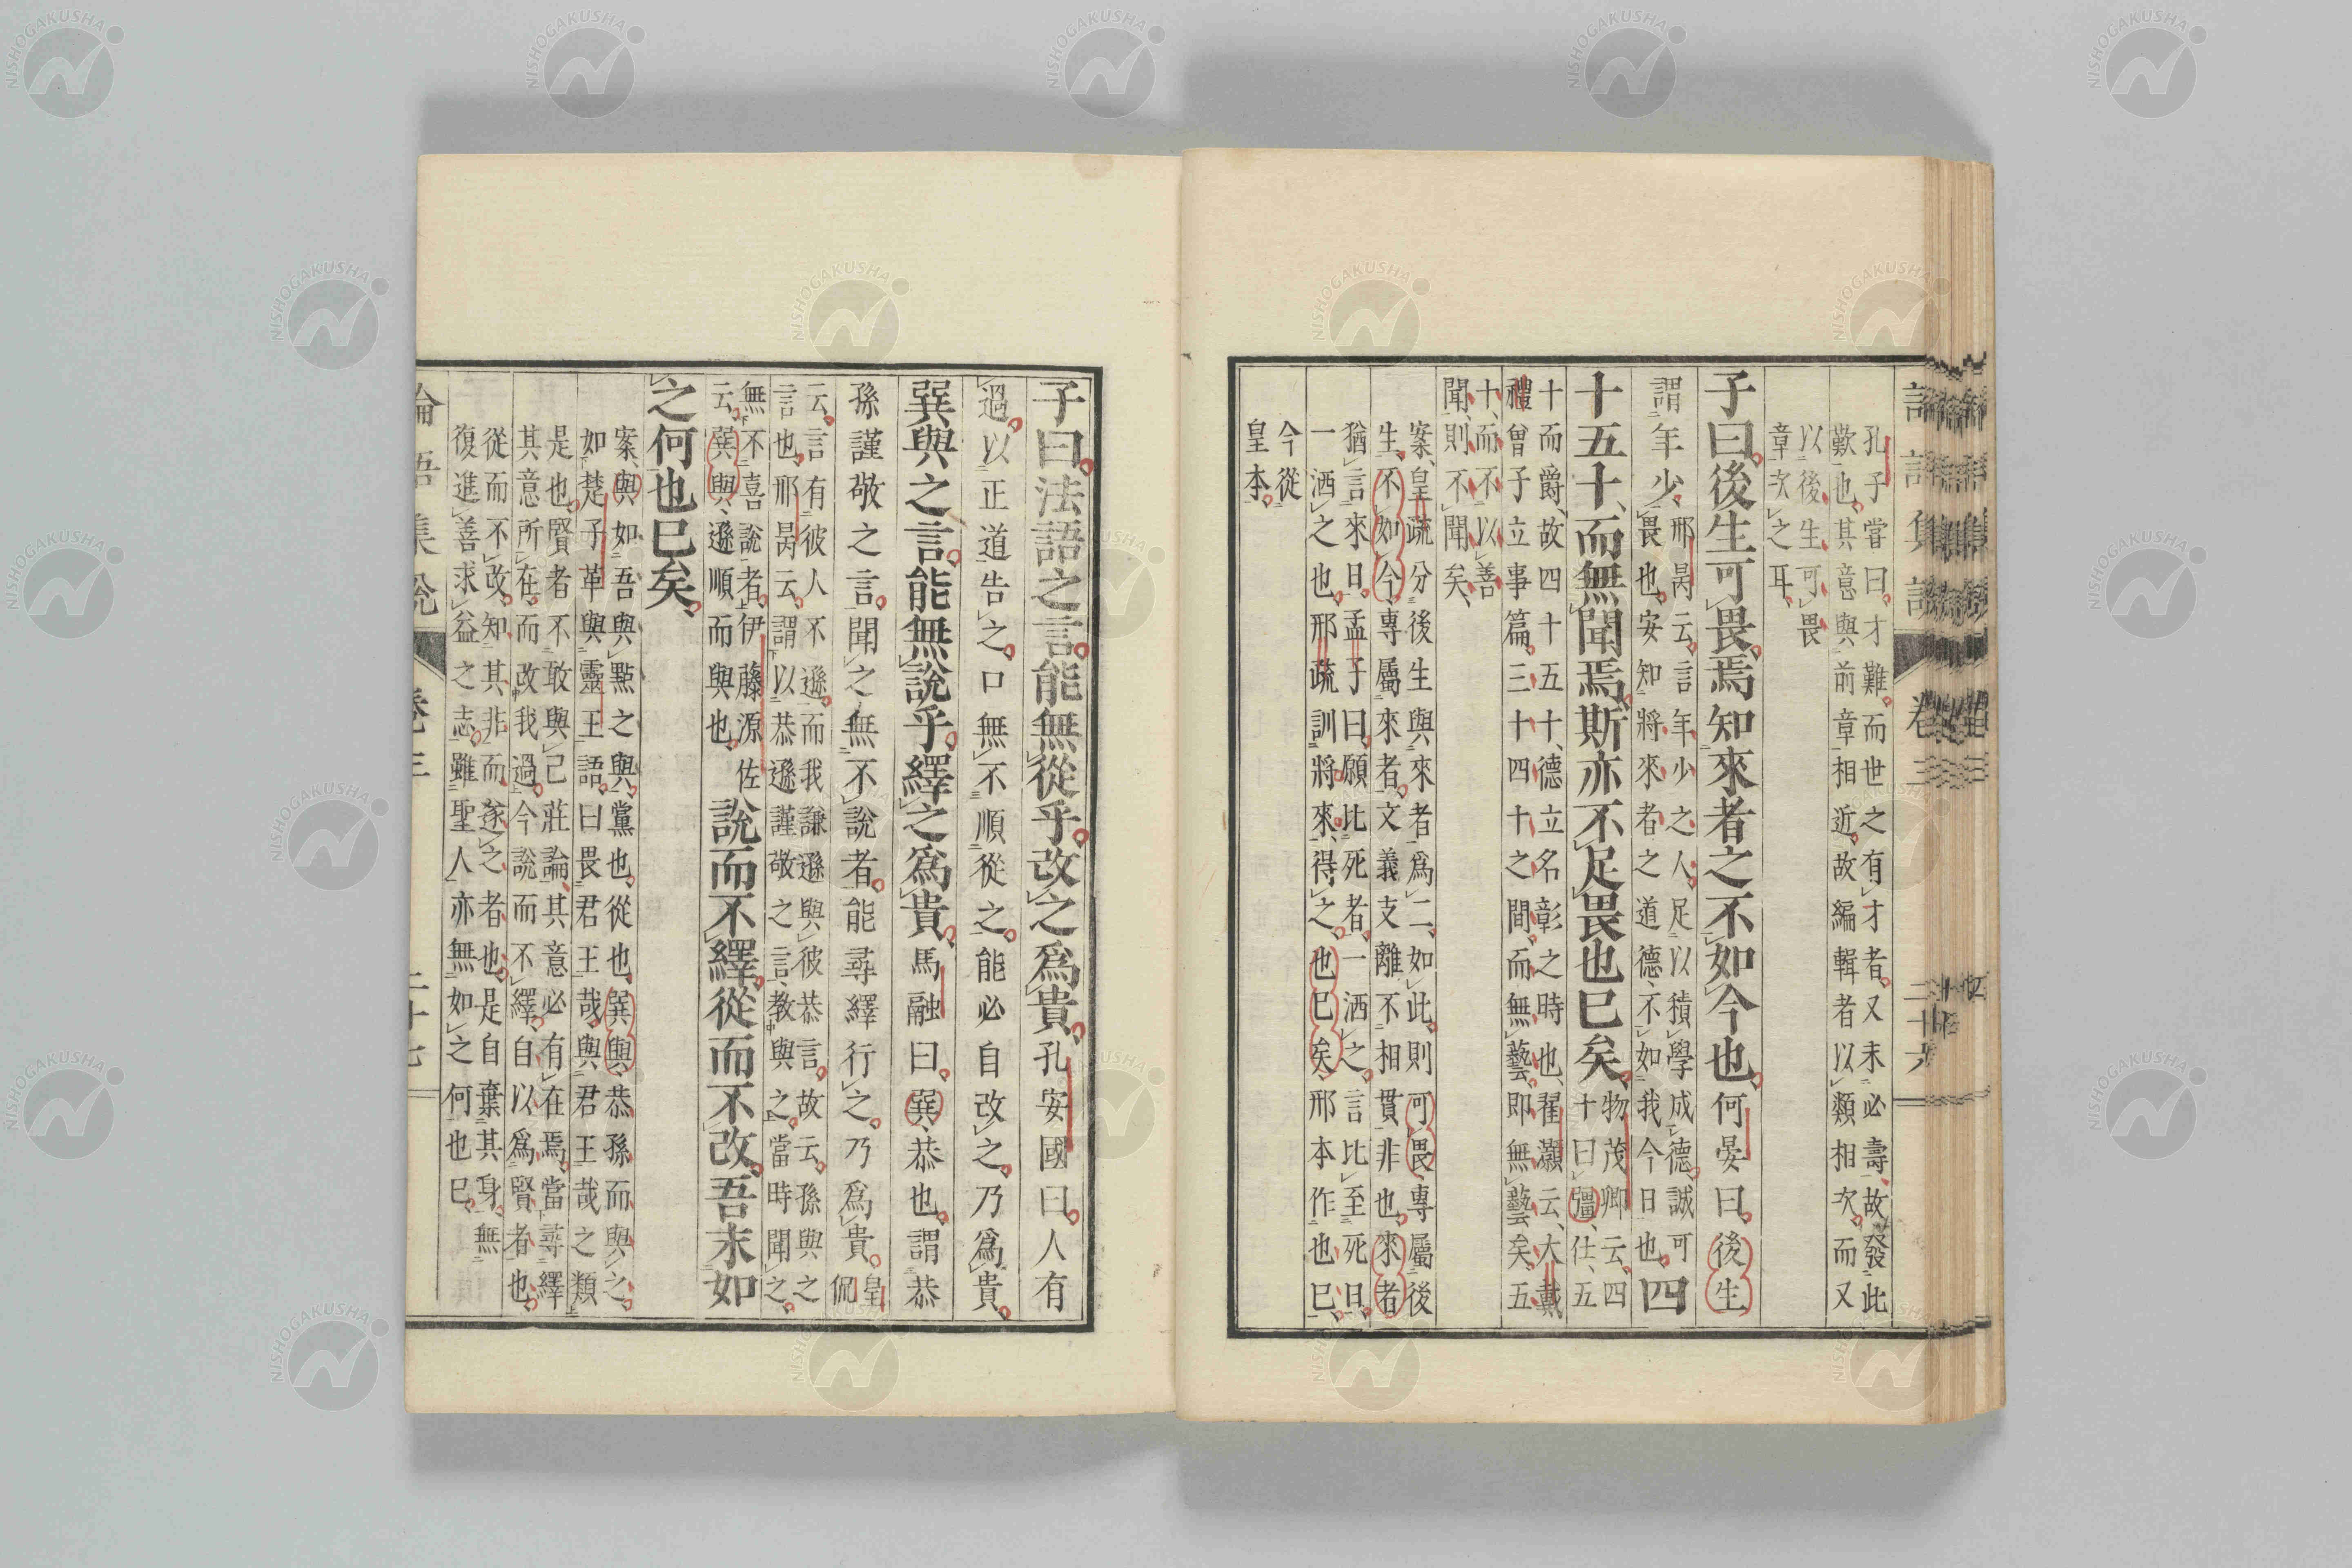 孔子嘗曰。才難。而世之有才者。又未必壽、故發此
歎也。其意與前章相近。故編輯者以類相次。而又
以後生可畏
章次之耳、
子曰。後生可畏。焉知來者之不如今也。何晏曰。後生
謂年少、
邢昺云。言年少之人。足以積學成德。誠可
畏也。安知將來者之道德、不如我今日也。
四
十五十、而無聞焉。斯亦不足畏也已矣。
物茂卿云。四
十曰彊仕、五
十而爵、故四十五十、德立名彰之時也、翟灝云、大戴
禮曾子立事篇。三十四十之間、而無藝。即無藝矣、五
十、而不以善
聞、則不聞矣、
案、皇疏分後生與來者爲二、如此。則可畏專屬後
生。不如今、專屬來者。文義支離不相貫。非也。來者
猶言來日。孟子曰。願比死者、一洒之。言比至死日。
一洒之也。邢疏訓將來、得之。也已矣、邢本作也已、
今從
皇本。
子曰。法語之言。能無從乎。改之爲貴。孔安國曰。人有
過。以正道告之。口無不順從之。能必自改之、乃爲貴。
巽與之言。能無說乎。繹之爲貴。馬融曰。巽、恭也。謂恭
孫謹敬之言。聞之無不說者。能尋繹行之。乃爲貴。
皇
侃
云。言有彼人不遜。而我謙遜與彼恭言。故云。孫與之
言也。邢昺云。謂以恭遜謹敬之言、教與之。當時聞之。
無不喜說者。伊藤源佐
云。巽與、遜順而與也。
說而不繹。從而不改。吾末如
之何也已矣、
案、與如吾與點之與。黨也、從也。巽與、恭孫而與之。
如楚子革與靈王語。曰畏君王哉。與君王哉之類
是也。賢者不敢與己莊論、其意必有在焉、當尋繹
其意所在、而改我過。今說而不繹、自以爲賢者也。
從而不改、知其非而遂之者也。是自棄其身、無
復進善求益之志。雖聖人亦無如之何也已。
論語集說
卷三
二十七
論語集說
卷三
二十六
NISHOGAKUSHA